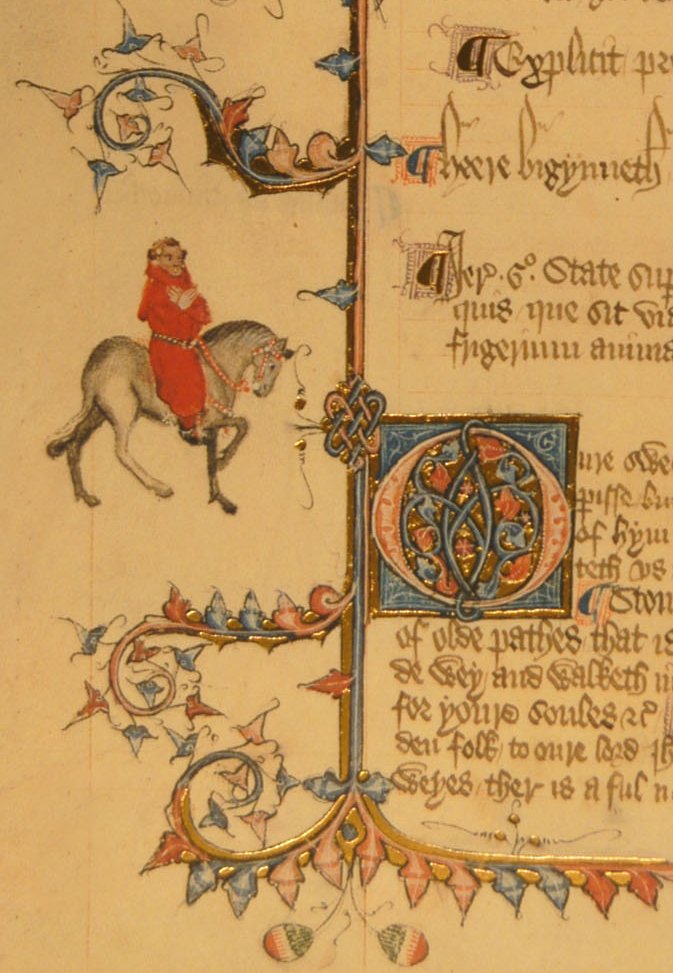 Explicit
heere bigynneth
Jer. 6o. State
quis que sit
frigerium
Oure
of hym
teth us
Ston
of olde pathes that is
de wey and walketh in
for youre soules &c
den folk to oure lord
weyes ther is a ful